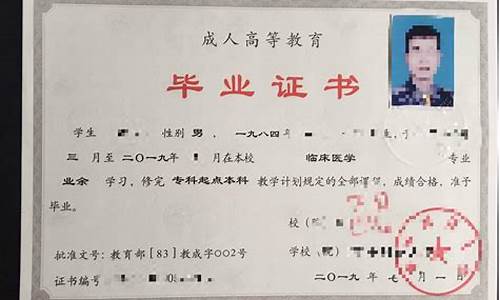 成人高等教育
毕业证书
学生 性别 男，一九八四年
三 月至二〇一九年 月在本校 临床医学 专业
业余 学习，修完 专科起点本科 教学计划规定的全部课程，成绩合格，准予
毕业。
校（院
批准文号：教育部［83］教成字002号 学校（院）
证书编号 二〇一九年 七 月 一 日